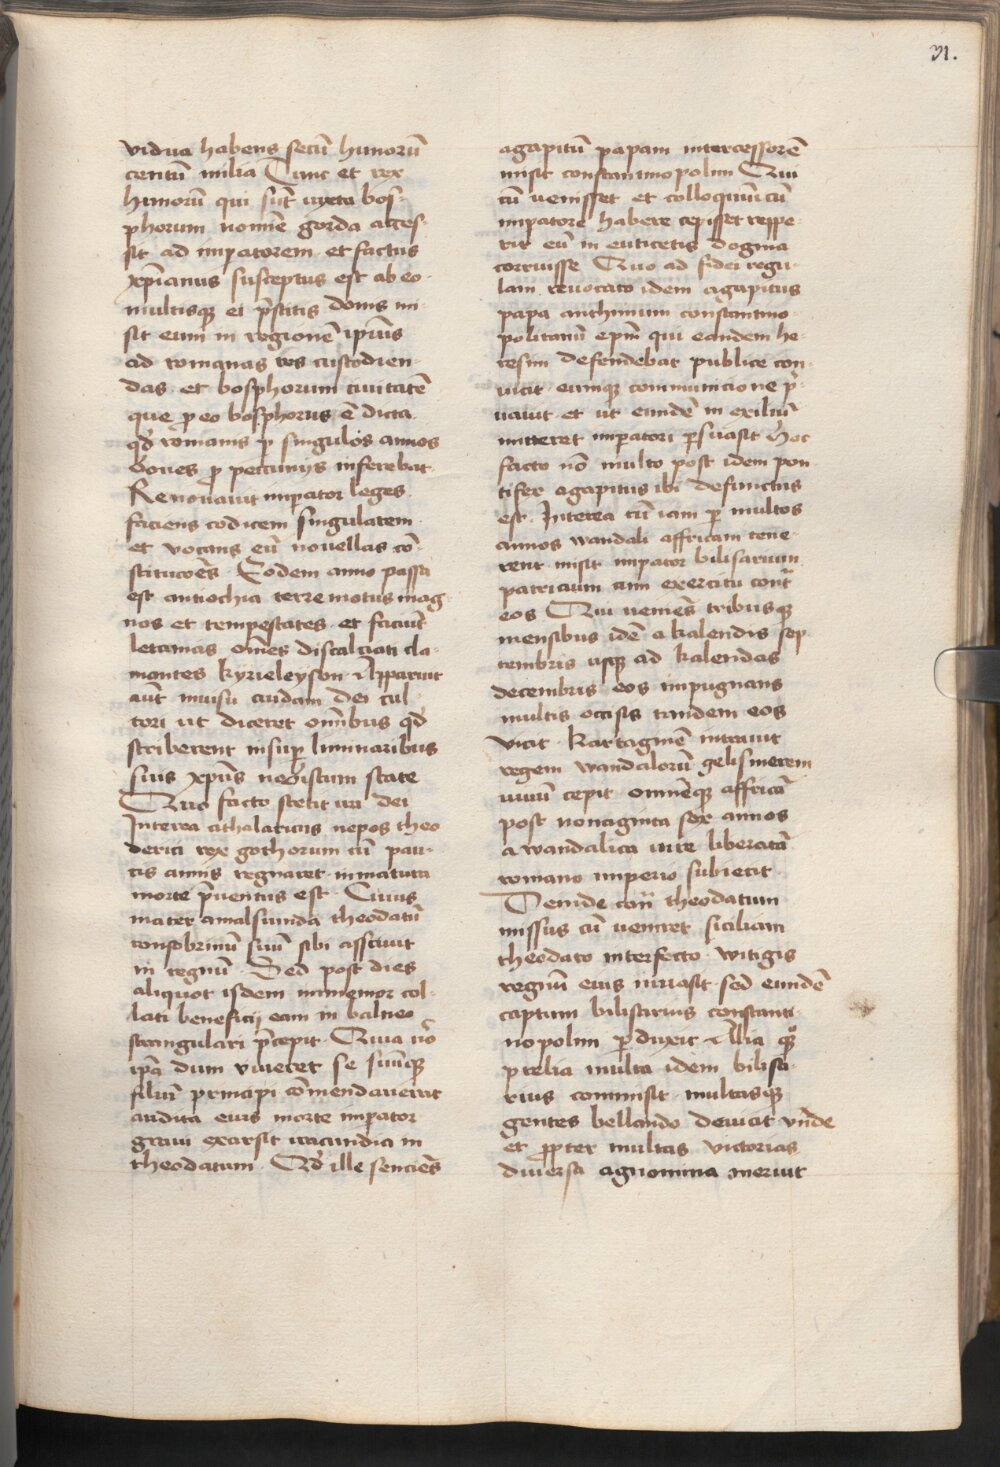 31.
vidua habens secū hunorū
centū milia Tunc et rex
hunorū qui sūt iuxta bos-
phorum nomīe gorda acces-
sit ad impatorem et factus
xp̄ianus susceptus est ab eo
multisq₃ ei p̄stitis donis mi-
sit eum in regionē ip̄ius
ad romanas res custodien-
das et bosphorum ciuitatē
que p eo bosphorus ē dicta
qd̓ romanis p singulos annos
boues p pecunijs inferebat
Renouauit impator leges
faciens codicem singularem
et vocans eū nouellas cō-
stitucōes Eodem anno passa
est antiochia terre motus mag
nos et tempestates et faciūt
letanias om̄es discalciati cla-
mantes kyrieleyson Apparuit
aūt in uisu cuidam dei cul-
tori ut diceret om̄ibus qd̓
scriberent insup liminaribus
suis xp̄us nobiscum state
Quo facto stetit ira dei
Interea athalaricus nepos theo
derici rex gothorum cū pau-
cis annis regnaret inmatura
morte p̄uentus est Cuius
mater amalsiunda theodatū
consobrinū suū sibi asciuit
in regnū Sed post dies
aliquot isdem inmemor col-
lati beneficij eam in balneo
strangulari p̄cepit Quia v̓o
ip̄a dum viueret se suūq₃
filiū principi cōmendauerat
audita eius morte impator
graui exarsit iracundia in
theodatum Qd̓ ille senciēs
agapitū papam intercessorē
misit constantinopolim Qui
cū uenisset et colloquiū cū
impatore habere cepisset reppe-
rit eū in euticetis dogma
corruisse Quo ad fidei regu-
lam reuocato idem agapitus
papa anthimum constantino-
politanū ep̄m qui eandem he-
resim defendebat publice con-
uicit eumq₃ communicione p̓-
uauit et ut eundē in exiliū
mitteret imperatori psuasit Hoc
facto nō multo post idem pon
tifex agapitus ibi defunctus
est Interea cū iam p multos
annos wandali affricam tene-
rent misit impator bilisarium
patricium cum exercitu cont̄
eos Qui ueniēs tribusq₃
mensibus idē a kalendis sep-
tembris usq₃ ad kalendas
decembris eos impugnans
multis occisis tandem eos
vicit kartaginē intrauit
regem wandalorū gelismerem
uiuū cepit omnēq₃ affricā
post nonaginta sex annos
a wandalica iure liberatā
romano imperio subiecit
Deinde con̄ theodatum
missus cū ueniret siciliam
theodato interfecto witigis
regnū eius inuasit sed eundē
captum bilisarius constanti-
nopolim pduxit Alia qq̊
prelia multa idem bilisa-
rius commisit multasq₃
gentes bellando deuicit vn̄de
et ppter multas victorias
diuersa agnomina meruit